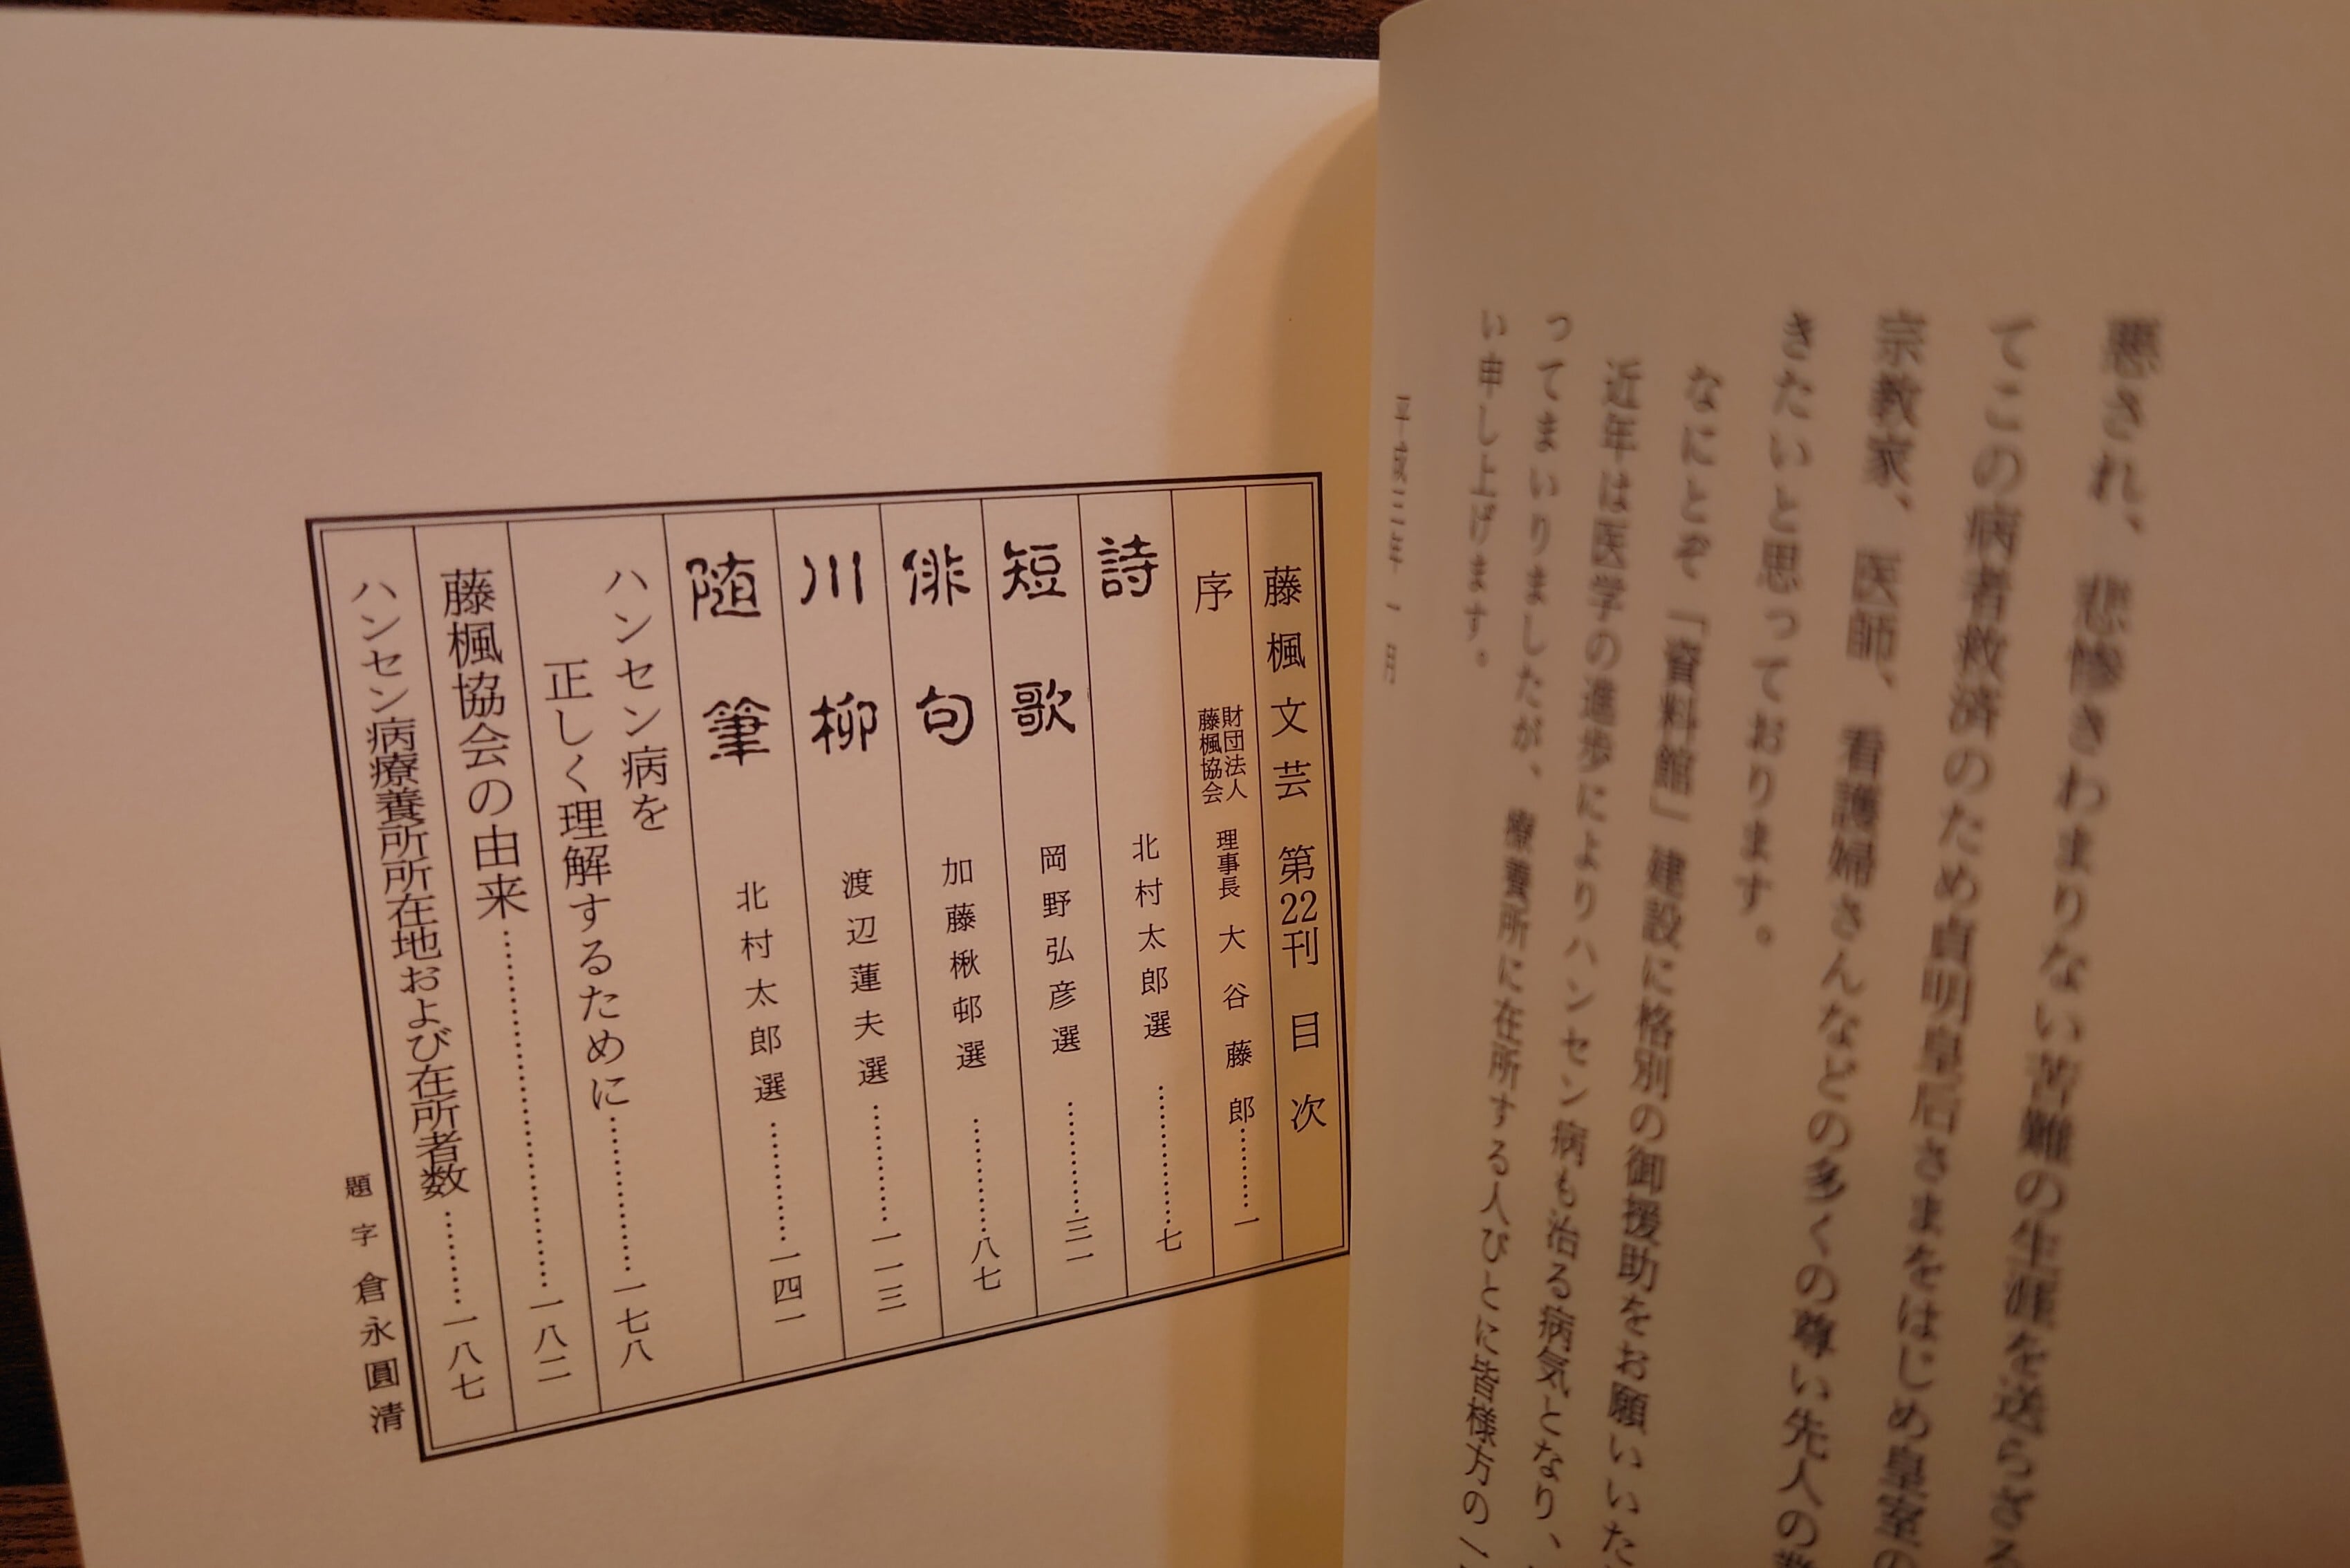 悪され、悲惨きわまりない苦難の生涯を送らざる
てこの病者救済のため貞明皇后さまをはじめ皇室の
宗教家、医師、看護婦さんなどの多くの尊い先人の
きたいと思っております。
なにとぞ「資料館」建設に格別の御援助をお願いいた
近年は医学の進歩によりハンセン病も治る病気となり、
ってまいりましたが、療養所に在所する人びとに皆様方の
い申し上げます。
平成三年一月
藤楓文芸 第22刊 目次
序 財団法人藤楓協会 理事長 大谷藤郎………一
詩 北村太郎選…………七
短歌 岡野弘彦選…………三一
俳句 加藤楸邨選…………八七
川柳 渡辺蓮夫選…………一一三
随筆 北村太郎選…………一四一
ハンセン病を
正しく理解するために…………一七八
藤楓協会の由来…………一八二
ハンセン病療養所所在地および在所者数………一八七
題字 倉永圓清